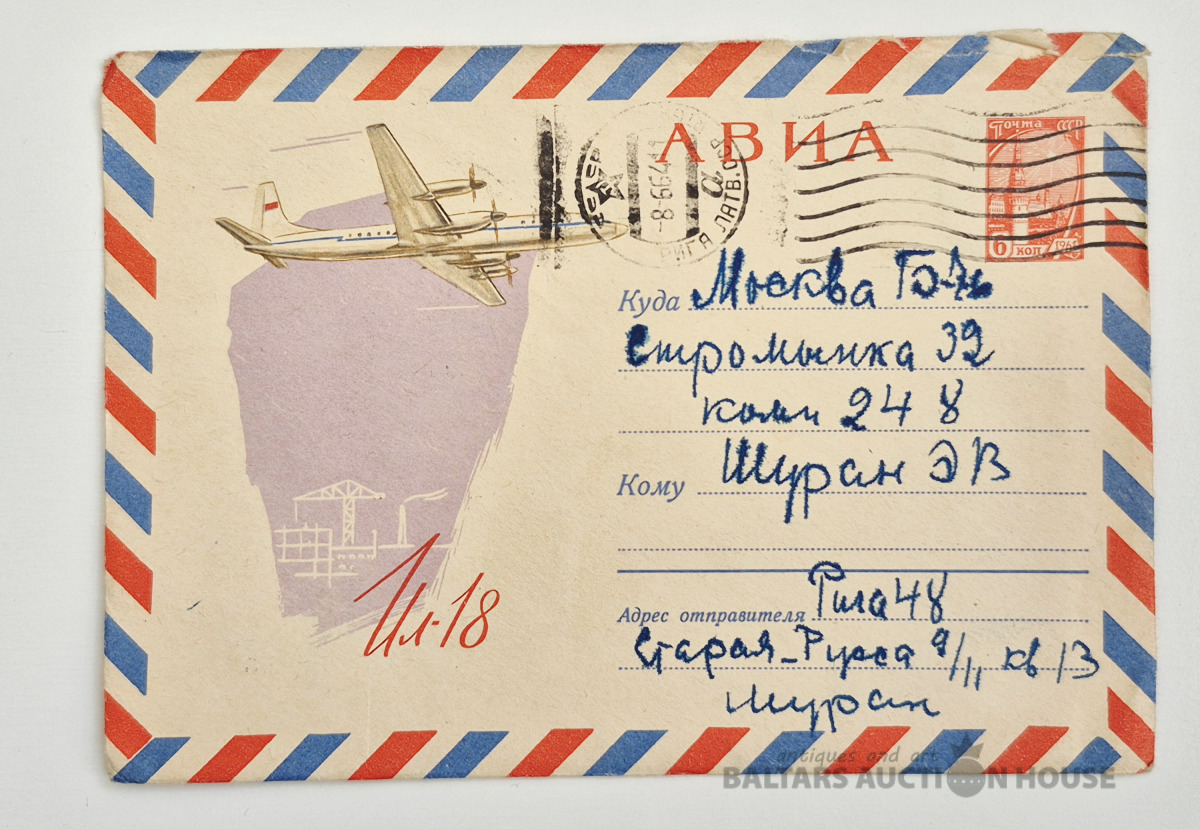 АВИА
Почта СССР
6 коп 1961
СССР
-8-6641
РИГА ЛАТВ. ССР
а
Куда Москва
Стромынка 32
комн 248
Кому Шуран Э В
Адрес отправителя Рига 48
Старая-Русса 9/11 кв 13
Шуран
Ил-18
antiques and art
BALTARS AUCTION HOUSE